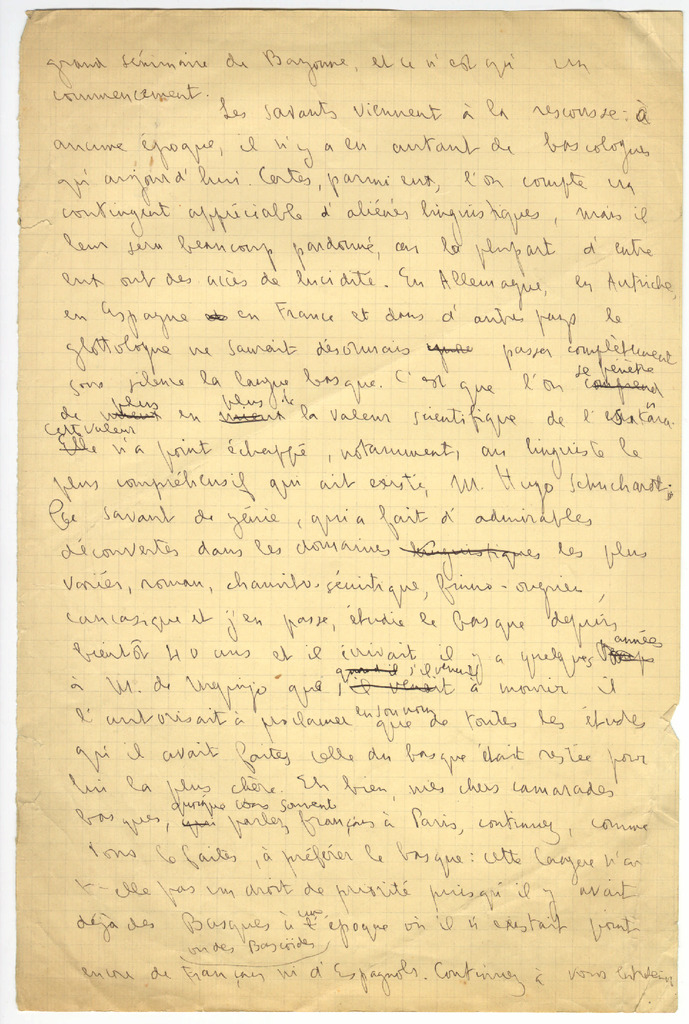 grand séminaire de Bayonne, et ce n'est qu'un
commencement.
Les savants viennent à la rescousse : à
aucune époque, il n'y a eu autant de bascologues
qu'aujourd'hui. Certes, parmi eux, l'on compte un
contingent appréciable d'aliénés linguistiques, mais il
leur sera beaucoup pardonné, car la plupart d'entre
eux ont des accès de lucidité. En Allemagne, en Autriche,
en Espagne en France et dans d'autres pays le
glottologue ne saurait désormais passer complètement
sous silence la langue basque. C'est que l'on se pénètre
de plus en plus de la valeur scientifique de l'
cette valeur
Elle n'a point échappé, notamment, au linguiste le
plus compréhensif qui ait existé, M. Hugo Schuchardt;
Ce savant de génie, qui a fait d'admirables
découvertes dans les domaines linguistiques les plus
variés, roman, chamito-sémitique, finno-ougrien,
caucasique et j'en passe, étudie le basque depuis
bientôt 40 ans et il écrivait il y a quelques années
à M. de Urquijo que, s'il venait à mourir il
l'autorisait à proclamer en son nom que de toutes les études
qu'il avait faites celle du basque était restée pour
lui la plus chère. Eh bien, mes chers camarades
basques, quoique vous sachant parlez français à Paris, continuez, comme
vous le faites, à préférer le basque : cette langue n'a
t-elle pas un droit de priorité puisqu'il y avait
déjà des Basques à une époque où il n'existait point
ou des Bascoïdes
encore de Français ni d'Espagnols. Continuez à vous